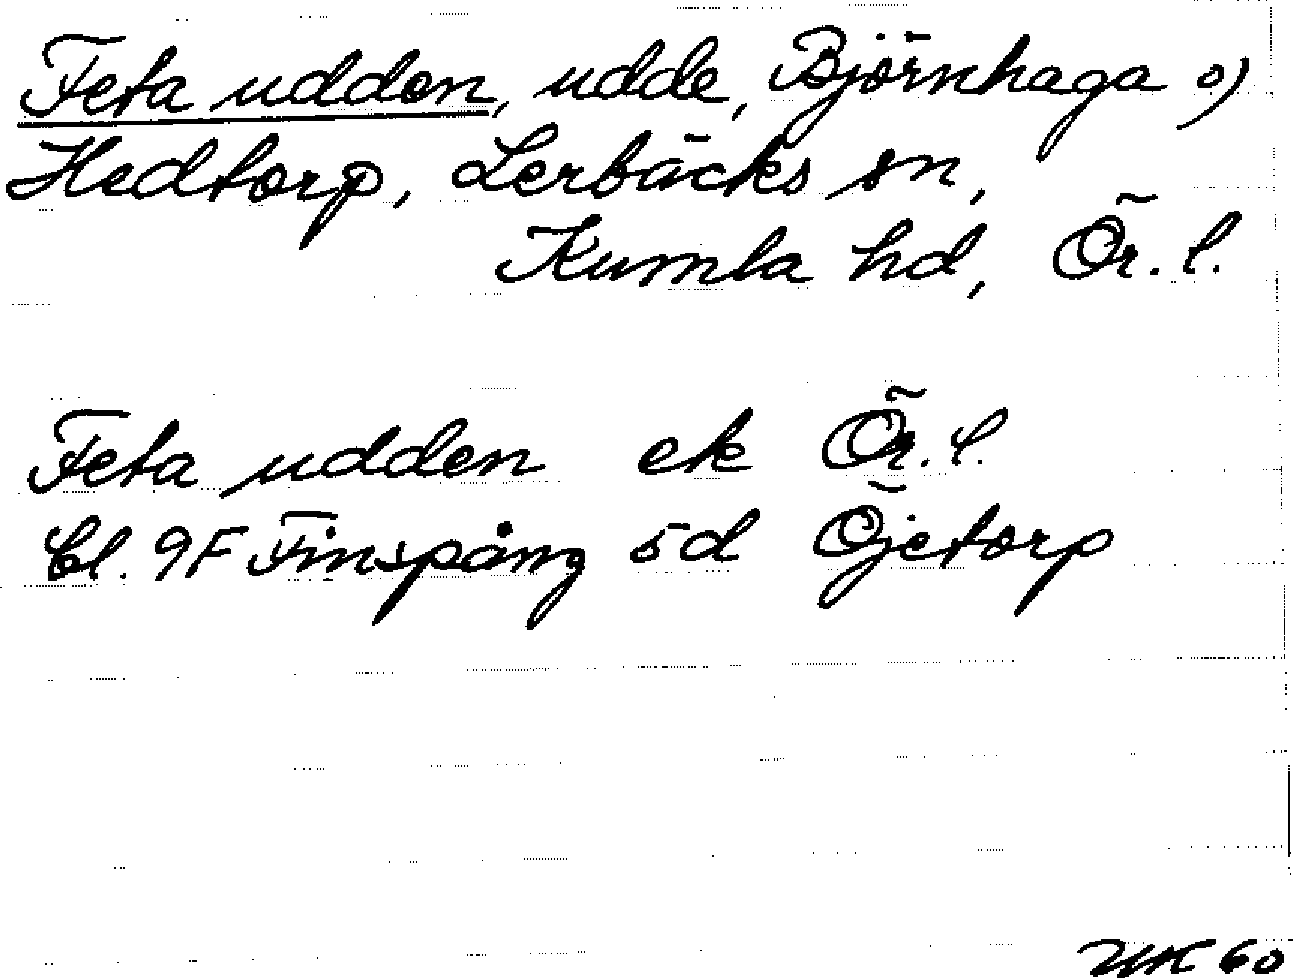 Feta udden, udde, Björnhaga o)
Hedtorp, Lerbäcks sn,
Kumla hd, Ör. l.
Feta udden ek Ör. l.
Bl. 9F Finspång 5d Öjetorp
60